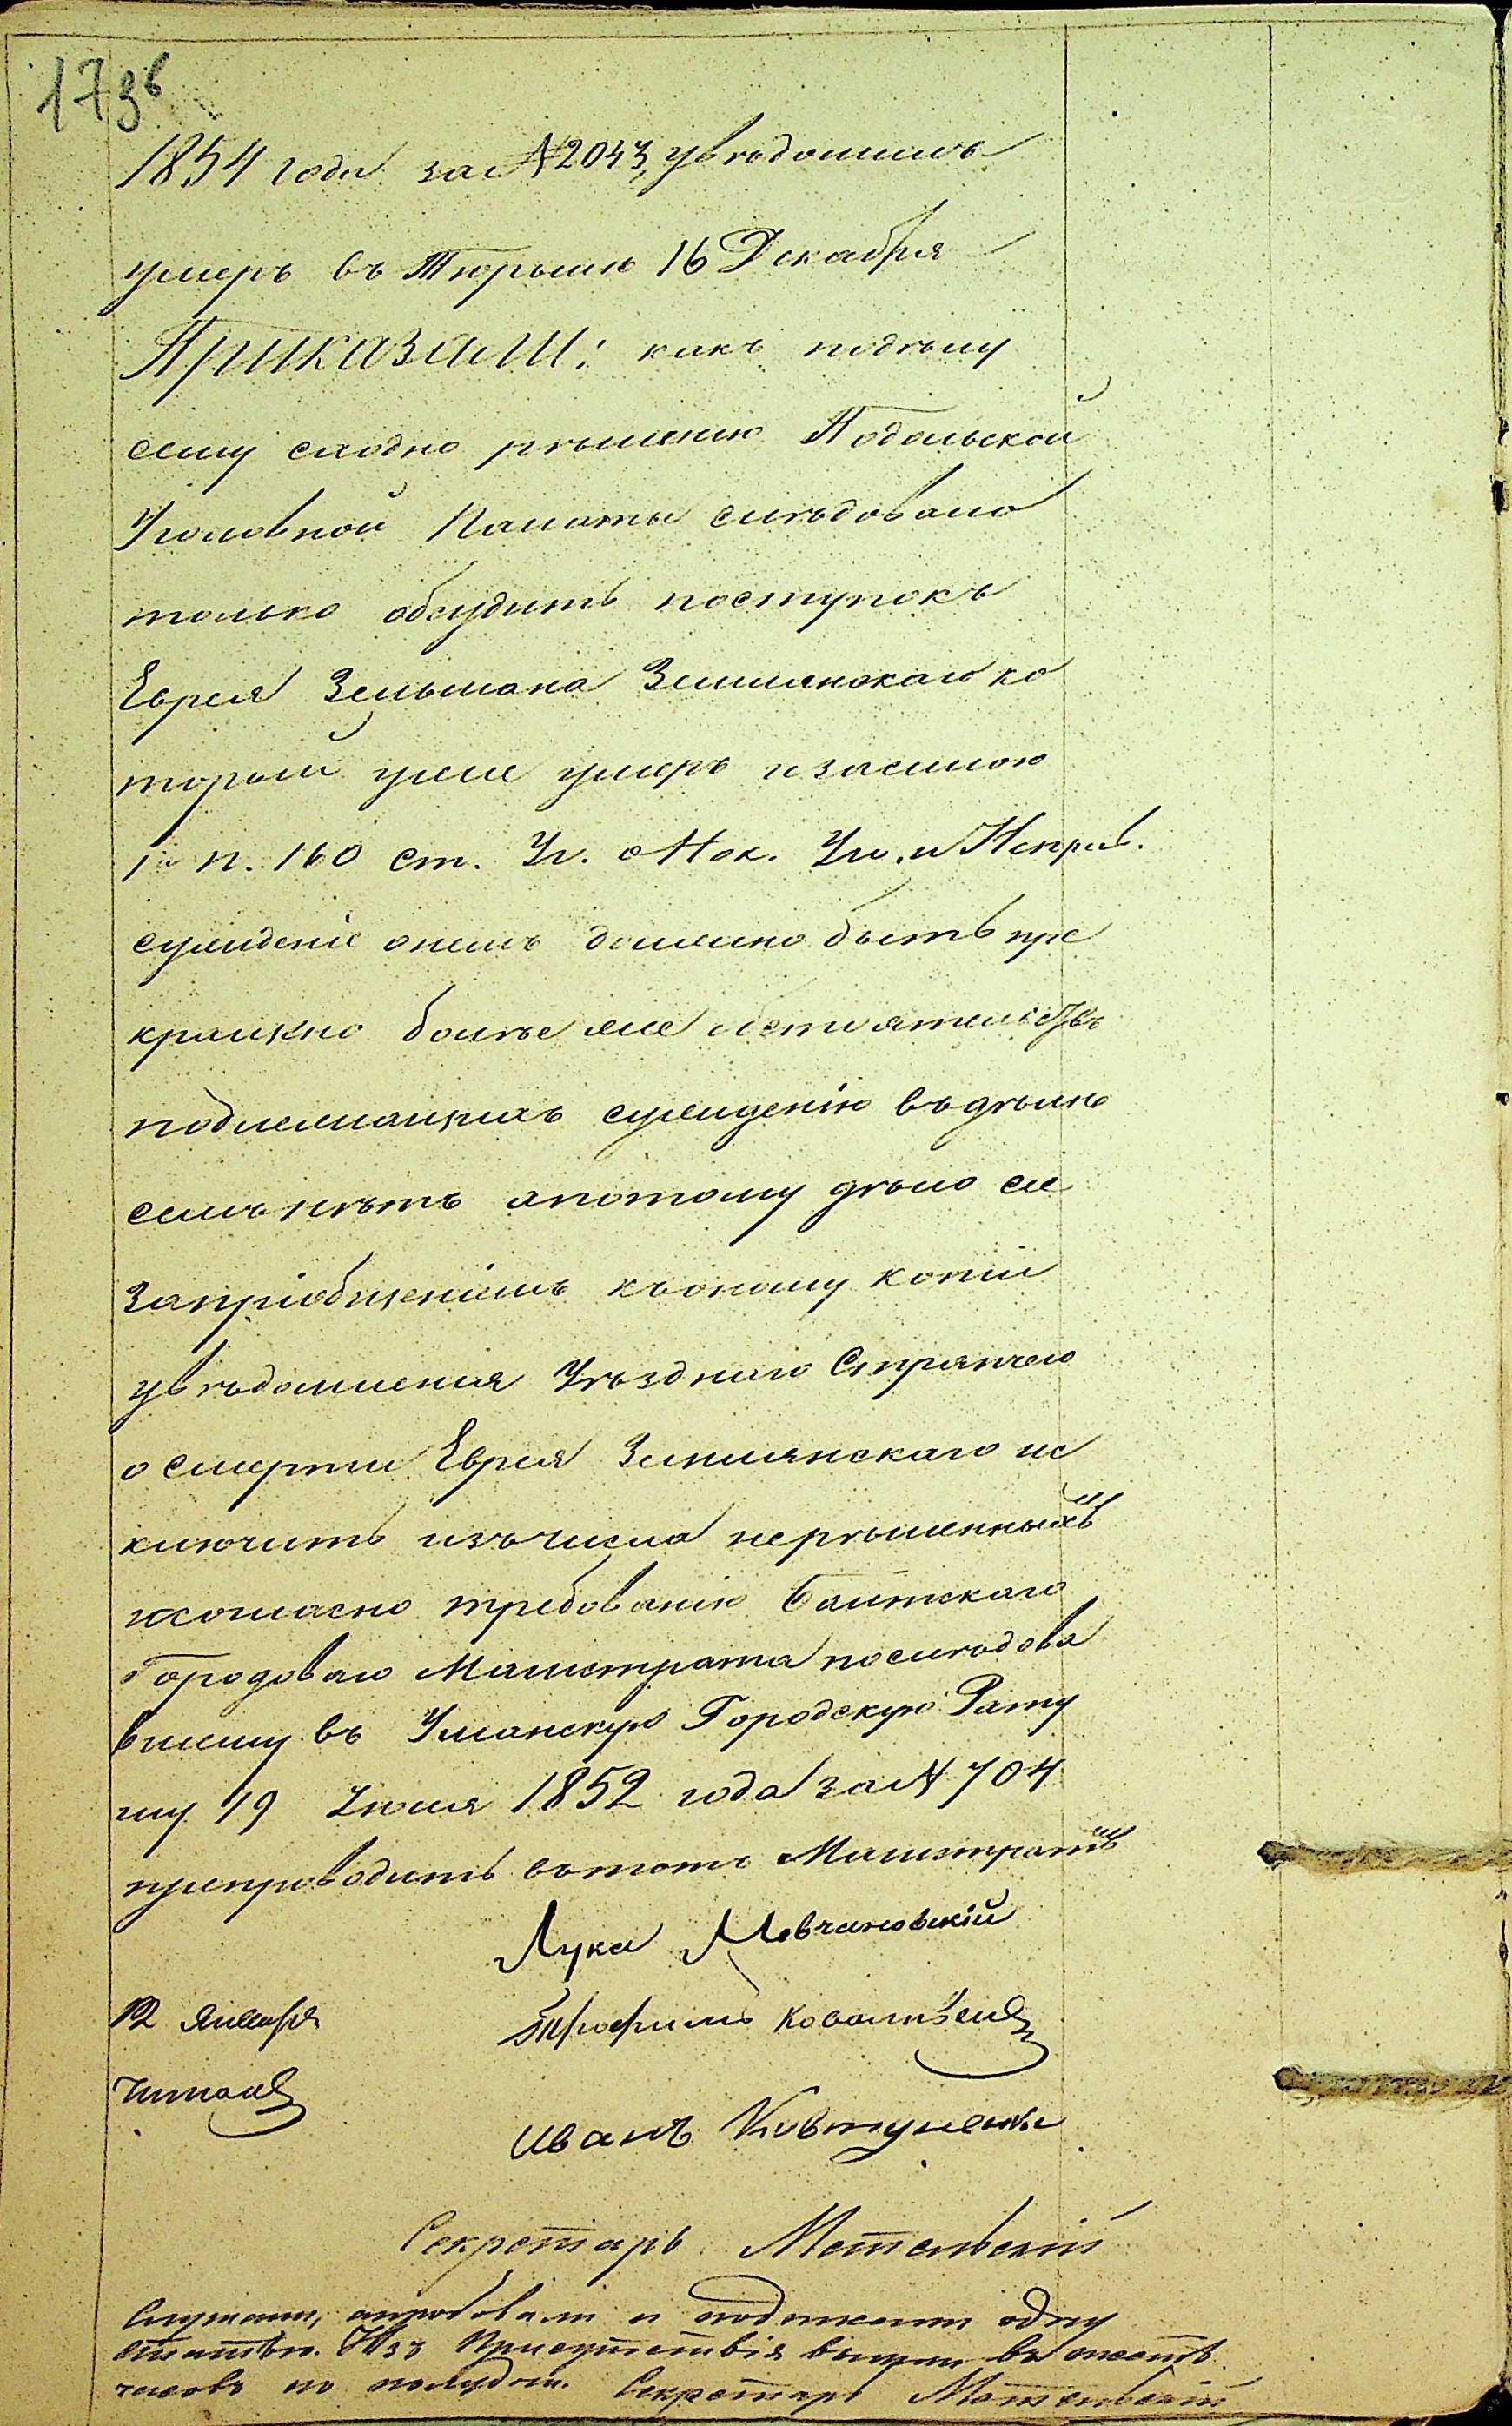 173б
1854 года за №2043, увѣдомилъ
умеръ въ Тюрьмѣ 16 Декабря
Приказали: какъ подѣлу
сему сходно рѣшенію Подольской
Уголовной Палаты слѣдовало
только обсудить поступокъ
Еврея Зельмана Землянскаго ко
торый уже умеръ изасилою
1й п. 160 ст. Ул. о Нак. Уго. и Исправ.
сужденіе онемъ должно быть пре
кращено болѣе же обстоятельствъ
подлежащихъ сужденію въдѣлѣ
семъ нѣтъ апотому дѣло сіе
запріобщеніемъ къоному копіи
увѣдомленія Уѣзднаго Стряпчего
о смерти Еврея Землянскаго ис
ключить изъчисла нерѣшенныхъ
исогласно требованію Балтскаго
Городоваго Магистрата последова
вшему въ Уманскую Городскую Рату
шу 19 Іюля 1852 года за № 704
препроводить вътотъ Магистратъ
Лука Мовчановскій
12 Января Трофимъ
Читалъ
Иванъ Ковтуненко
Секретарь Метельскій
Слушали, апробовали и подписали одну
статью. Изъ Присутствія вышли въ
часовъ по полудни. Секретарь Метельскій